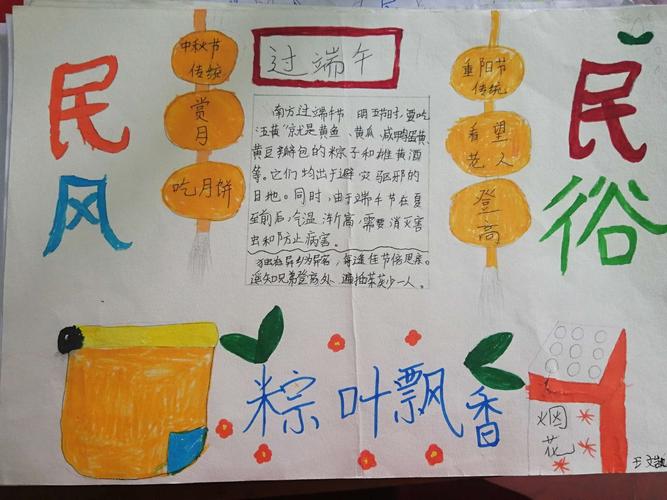 民风
民俗
中秋节
传统
赏
月
吃月饼
过端午
重阳节
传统
看望
老人
登
高
南方过端午节 明五时,要吃
"五黄"京就是黄鱼、黄瓜、咸鸭蛋黄、
黄豆瓣包的粽子和雄黄酒
等。它们均出于避灾驱邪的
目地。同时,由于端午节在夏
至前后,气温渐高,需要消灭害
虫和防止病害。
独在异乡为异客,每逢佳节倍思亲。
遥知兄弟登高处,遍插茱萸少一人。
粽叶飘香
烟
花